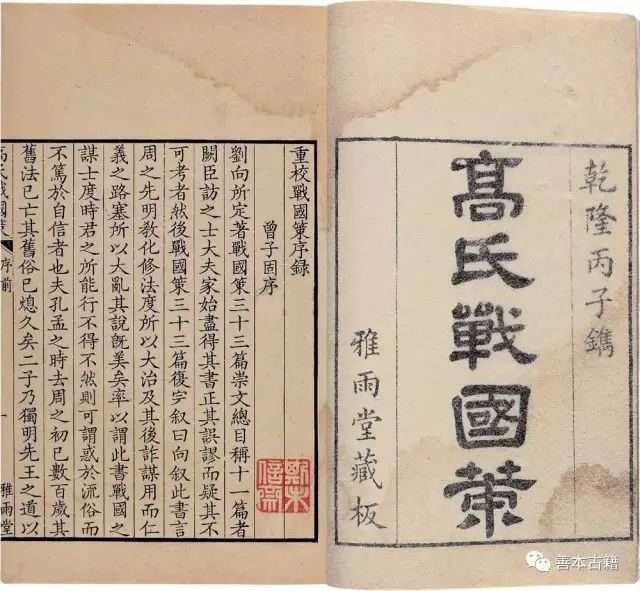 乾隆丙子鐫
高氏戰國策
雅雨堂藏板
重校戰國策序録
曾子固序
劉向所定著戰國策三十三篇崇文總目稱十一篇者
闕臣訪之士大夫家始盡得其書正其誤謬而疑其不
可考者然後戰國策三十三篇復完叙曰向叙此書言
周之先明敎化修法度所以大治及其後詐謀用而仁
義之路塞所以大亂其說旣美矣率以謂此書戰國之
謀士度時君之所能行不得不然則可謂惑於流俗而
不篤於自信者也夫孔孟之時去周之初已數百歲其
舊法已亡其舊俗已熄久矣二子乃獨明先王之道以
高氏戰國策
序前
一
雅雨堂
善本古籍